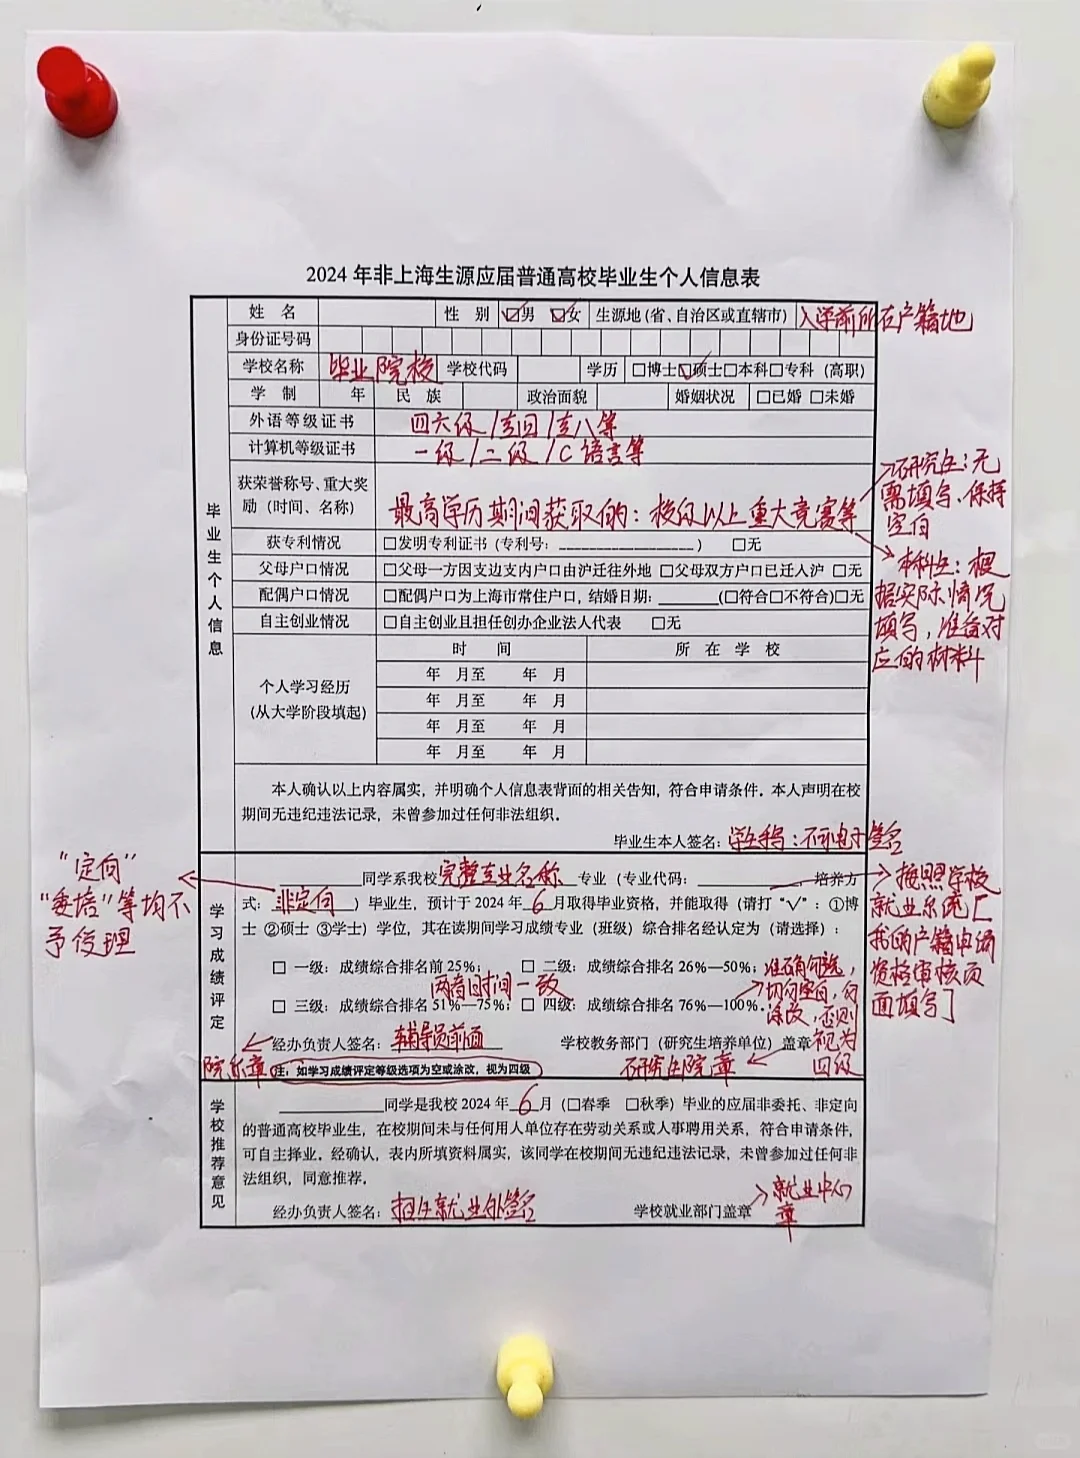 2024 年非上海生源应届普通高校毕业生个人信息表
姓 名 性 别 ☑男 ☑女 生源地(省、自治区或直辖市) 入学前所在户籍地
身份证号码
学校名称 毕业院校 学校代码 学历 □博士☑硕士□本科□专科 (高职)
学 制 年 民 族 政治面貌 婚姻状况 □已婚 □未婚
外语等级证书 四六级/专四/专八等
计算机等级证书 一级/二级/C语言等
获荣誉称号、重大奖
励(时间、名称) 最高学历期间获取的:校级以上重大竞赛等
研究生:无
需填写,保持
空白
本科生:根
据实际情况
填写,准备对
应的材料
毕业生个人信息
获专利情况 □发明专利证书(专利号:________) □无
父母户口情况 □父母一方因支边支内户口由沪迁往外地 □父母双方户口已迁入沪 □无
配偶户口情况 □配偶户口为上海市常住户口,结婚日期:______(□符合□不符合)□无
自主创业情况 □自主创业且担任创办企业法人代表 □无
个人学习经历
(从大学阶段填起)
时 间 所 在 学 校
年 月至 年 月
年 月至 年 月
年 月至 年 月
年 月至 年 月
本人确认以上内容属实,并明确个人信息表背面的相关告知,符合申请条件。本人声明在校
期间无违纪违法记录,未曾参加过任何非法组织。
毕业生本人签名: 不可电子签名
学习成绩评定
________同学系我校 完整专业名称 专业(专业代码:________,培养方
式: 非定向 )毕业生,预计于 2024 年 6 月取得毕业资格,并能取得(请打“√”:①博
士 ②硕士 ③学士)学位,其在读期间学习成绩专业(班级)综合排名经认定为(请选择):
□ 一级:成绩综合排名前 25%; □ 二级:成绩综合排名 26%—50%;
□ 三级:成绩综合排名 51%—75%; □ 四级:成绩综合排名 76%—100%。
“定向”
“委培”等均不
予受理
按照学校
就业系统[
我的户籍申请
资格审核页
面填写]
时间一致
准确勾选,
切勿空白,勿
涂改,否则
视为
四级
经办负责人签名: 辅导员 学校教务部门(研究生培养单位)盖章
院系章
研究生院章
注:如学习成绩评定等级选项为空或涂改,视为四级
学校推荐意见
________同学是我校 2024 年 6 月(□春季 □秋季)毕业的应届非委托、非定向
的普通高校毕业生,在校期间未与任何用人单位存在劳动关系或人事聘用关系,符合申请条件,
可自主择业。经确认,表内所填资料属实,该同学在校期间无违纪违法记录,未曾参加过任何非
法组织,同意推荐。
经办负责人签名: 就业 签名 学校就业部门盖章
就业中心
章